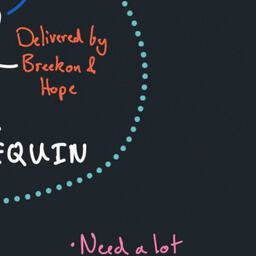 Delivered by
Breekon &
Hope
EQUIN
·Need a lot